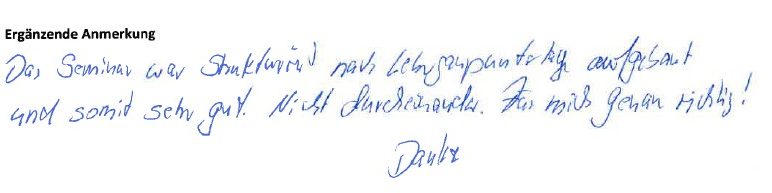 Ergänzende Anmerkung
Das Seminar war strukturiert nach aufgebaut
und somit sehr gut. Nicht durcheinander. Für mich genau richtig!
Danke